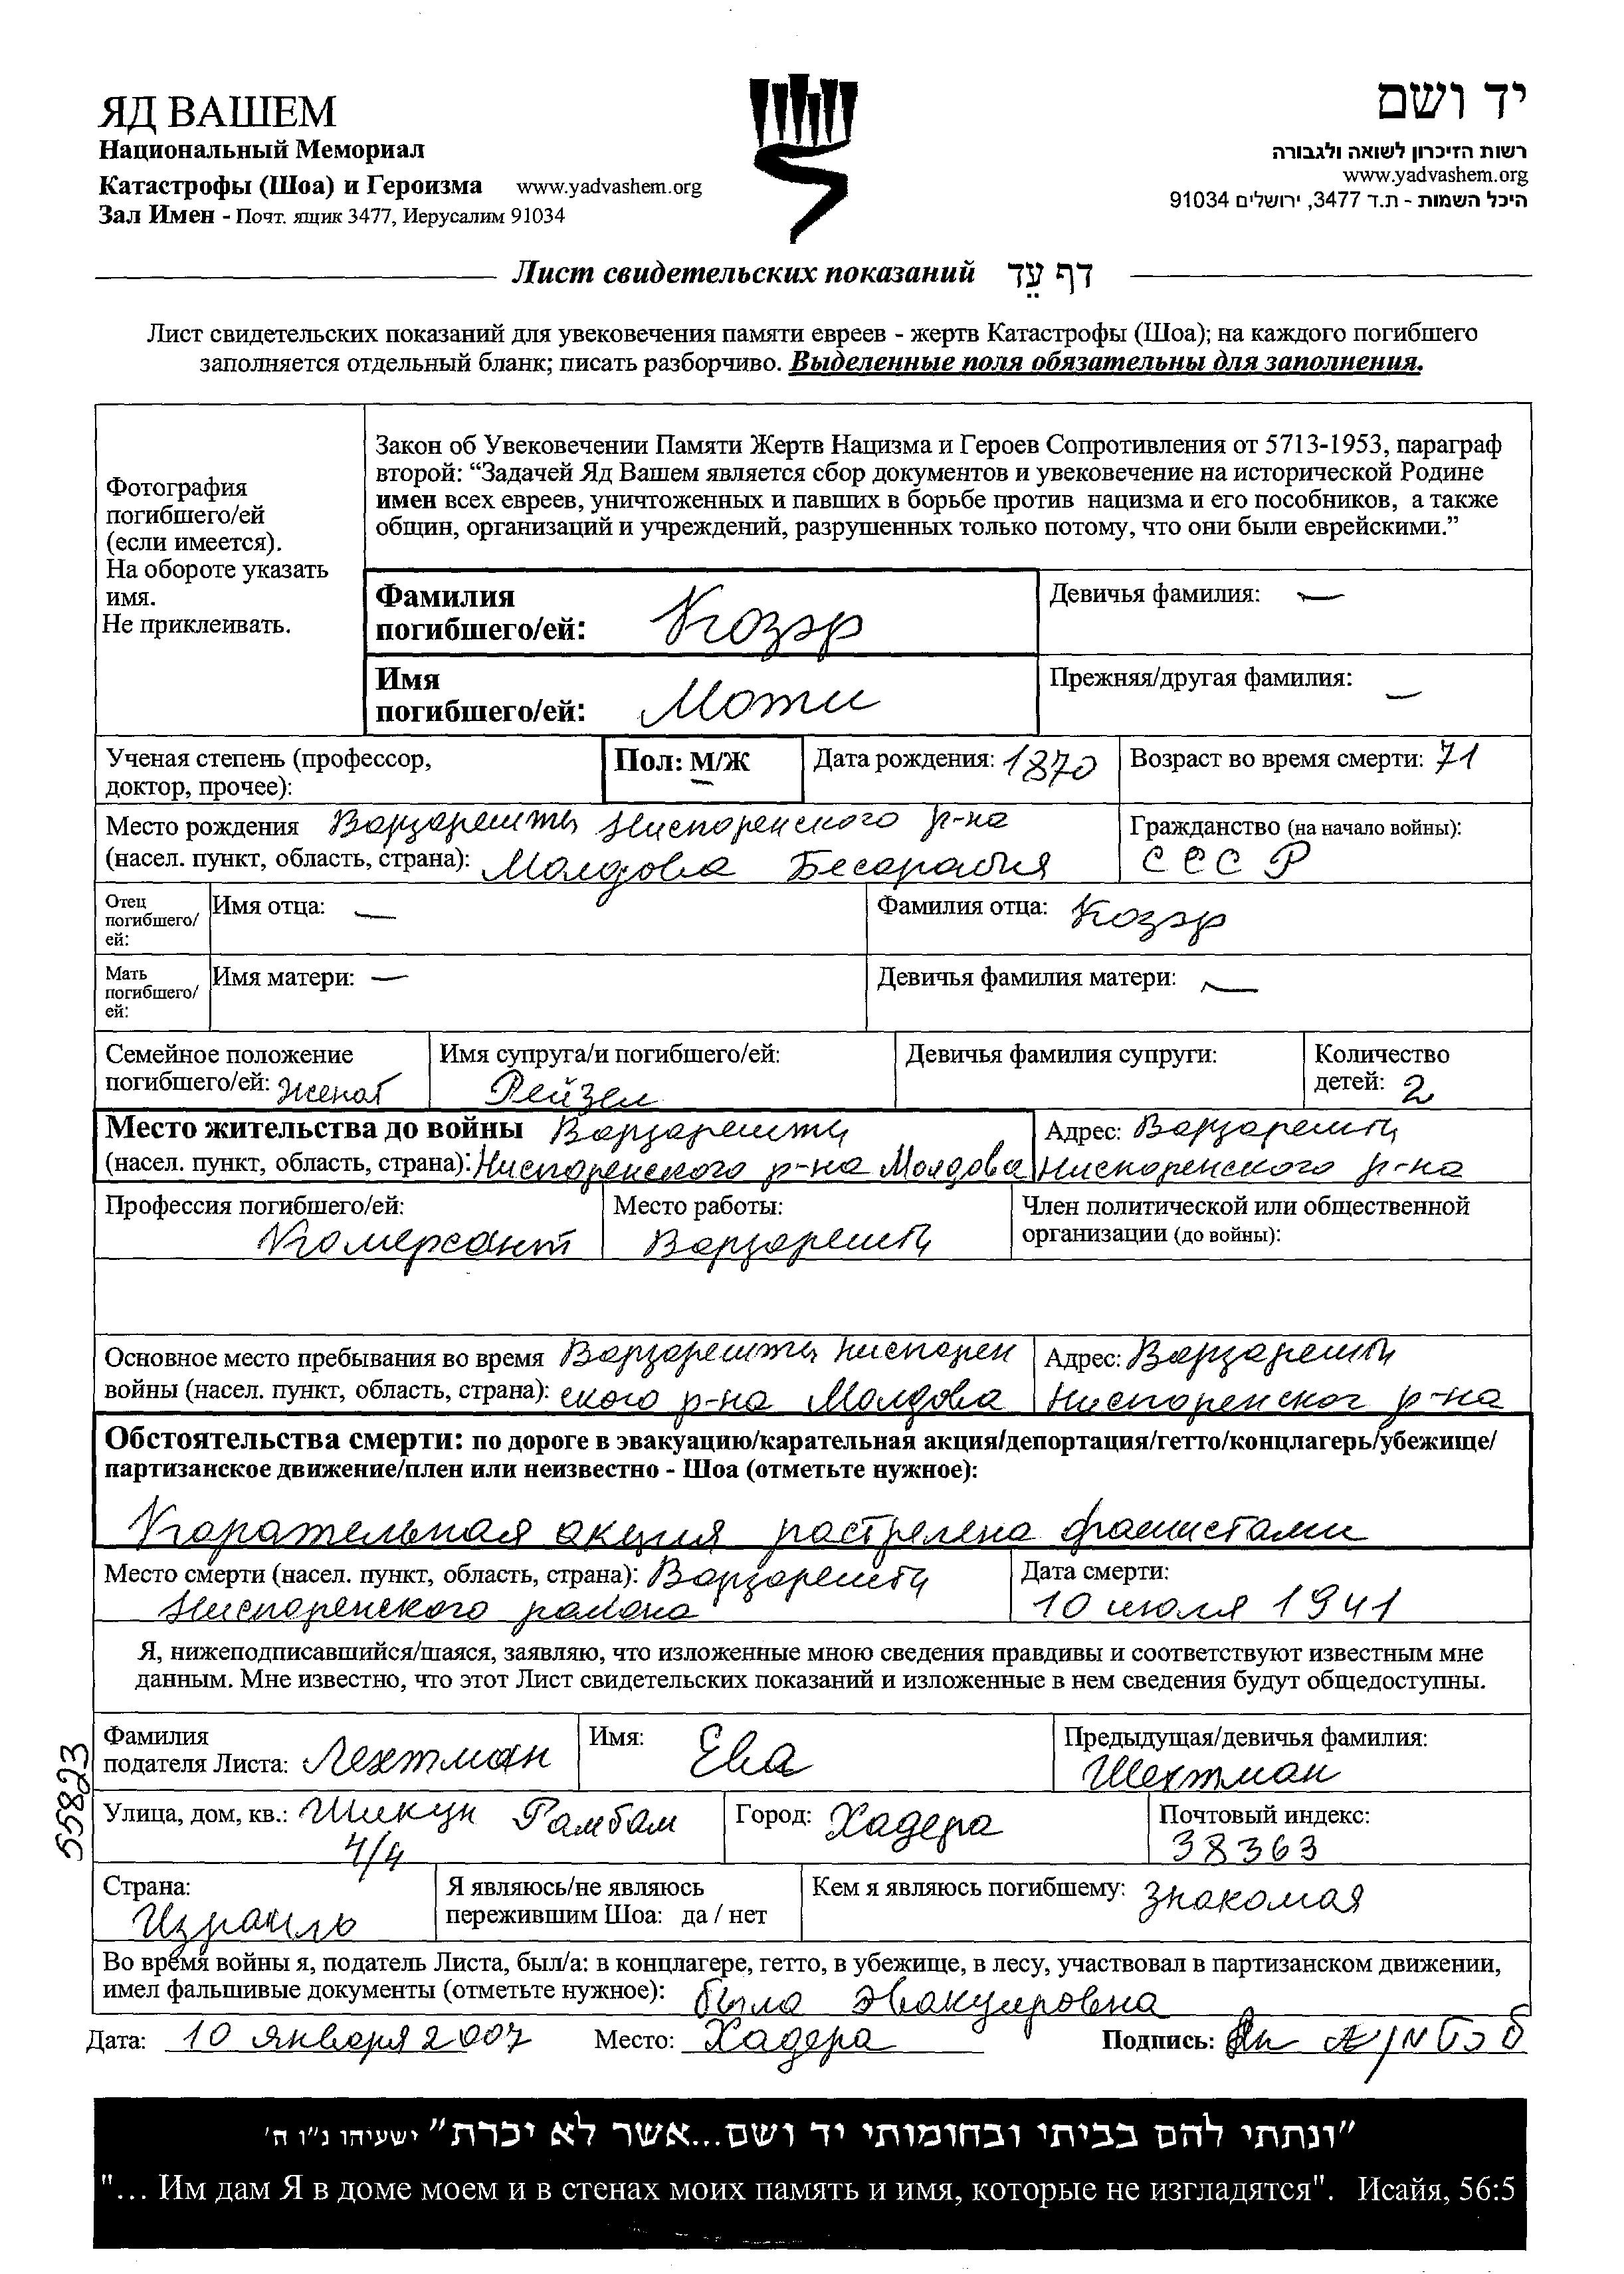 ЯД ВАШЕМ
Национальный Мемориал
Катастрофы (Шоа) и Героизма www.yadvashem.org
Зал Имен - Почт. ящик 3477, Иерусалим 91034
יד ושם
רשות הזיכרון לשואה ולגבורה
www.yadvashem.org
היכל השמות - ת.ד 3477, ירושלים 91034
Лист свидетельских показаний דף עֵד
Лист свидетельских показаний для увековечения памяти евреев - жертв Катастрофы (Шоа); на каждого погибшего
заполняется отдельный бланк; писать разборчиво. Выделенные поля обязательны для заполнения.
Фотография
погибшего/ей
(если имеется).
На обороте указать
имя.
Не приклеивать.
Закон об Увековечении Памяти Жертв Нацизма и Героев Сопротивления от 5713-1953, параграф
второй: “Задачей Яд Вашем является сбор документов и увековечение на исторической Родине
имен всех евреев, уничтоженных и павших в борьбе против нацизма и его пособников, а также
общин, организаций и учреждений, разрушенных только потому, что они были еврейскими.”
Фамилия
погибшего/ей: Козэр
Девичья фамилия: —
Имя
погибшего/ей: Моти
Прежняя/другая фамилия: —
Ученая степень (профессор,
доктор, прочее):
Пол: М/Ж
Дата рождения: 1870
Возраст во время смерти: 71
Место рождения Варзарешты Ниспоренского р-на
(насел. пункт, область, страна): Молдова Бесарабия
Гражданство (на начало войны):
СССР
Отец
погибшего/
ей:
Имя отца: —
Фамилия отца: Козэр
Мать
погибшего/
ей:
Имя матери: —
Девичья фамилия матери: —
Семейное положение
погибшего/ей: женат
Имя супруга/и погибшего/ей:
Рейзел
Девичья фамилия супруги:
Количество
детей: 2
Место жительства до войны Варзарешты
(насел. пункт, область, страна): Ниспоренского р-на Молдова
Адрес: Варзарешты
Ниспоренского р-на
Профессия погибшего/ей:
Комерсант
Место работы:
Варзарешты
Член политической или общественной
организации (до войны):
Основное место пребывания во время Варзарешты Ниспорен
войны (насел. пункт, область, страна): ского р-на Молдова
Адрес: Варзарешты
Ниспоренског р-на
Обстоятельства смерти: по дороге в эвакуацию/карательная акция/депортация/гетто/концлагерь/убежище/
партизанское движение/плен или неизвестно - Шоа (отметьте нужное):
Карательная акция растрелена фашистами
Место смерти (насел. пункт, область, страна): Варзарешты
Ниспоренского района
Дата смерти:
10 июля 1941
Я, нижеподписавшийся/шаяся, заявляю, что изложенные мною сведения правдивы и соответствуют известным мне
данным. Мне известно, что этот Лист свидетельских показаний и изложенные в нем сведения будут общедоступны.
Фамилия
подателя Листа: Лехтман
Имя: Ева
Предыдущая/девичья фамилия:
Шехтман
Улица, дом, кв.: Шикун Рамбам
4/4
Город: Хадера
Почтовый индекс:
38363
Страна:
Израиль
Я являюсь/не являюсь
пережившим Шоа: да / нет
Кем я являюсь погибшему: знакомая
Во время войны я, податель Листа, был/а: в концлагере, гетто, в убежище, в лесу, участвовал в партизанском движении,
имел фальшивые документы (отметьте нужное): была эвакуировна
Дата: 10 января 2007 Место: Хадера Подпись:
55823
"ונתתי להם בביתי ובחומותי יד ושם...אשר לא יכרת" ישעיהו נ"ו ה'
"… Им дам Я в доме моем и в стенах моих память и имя, которые не изгладятся". Исайя, 56:5